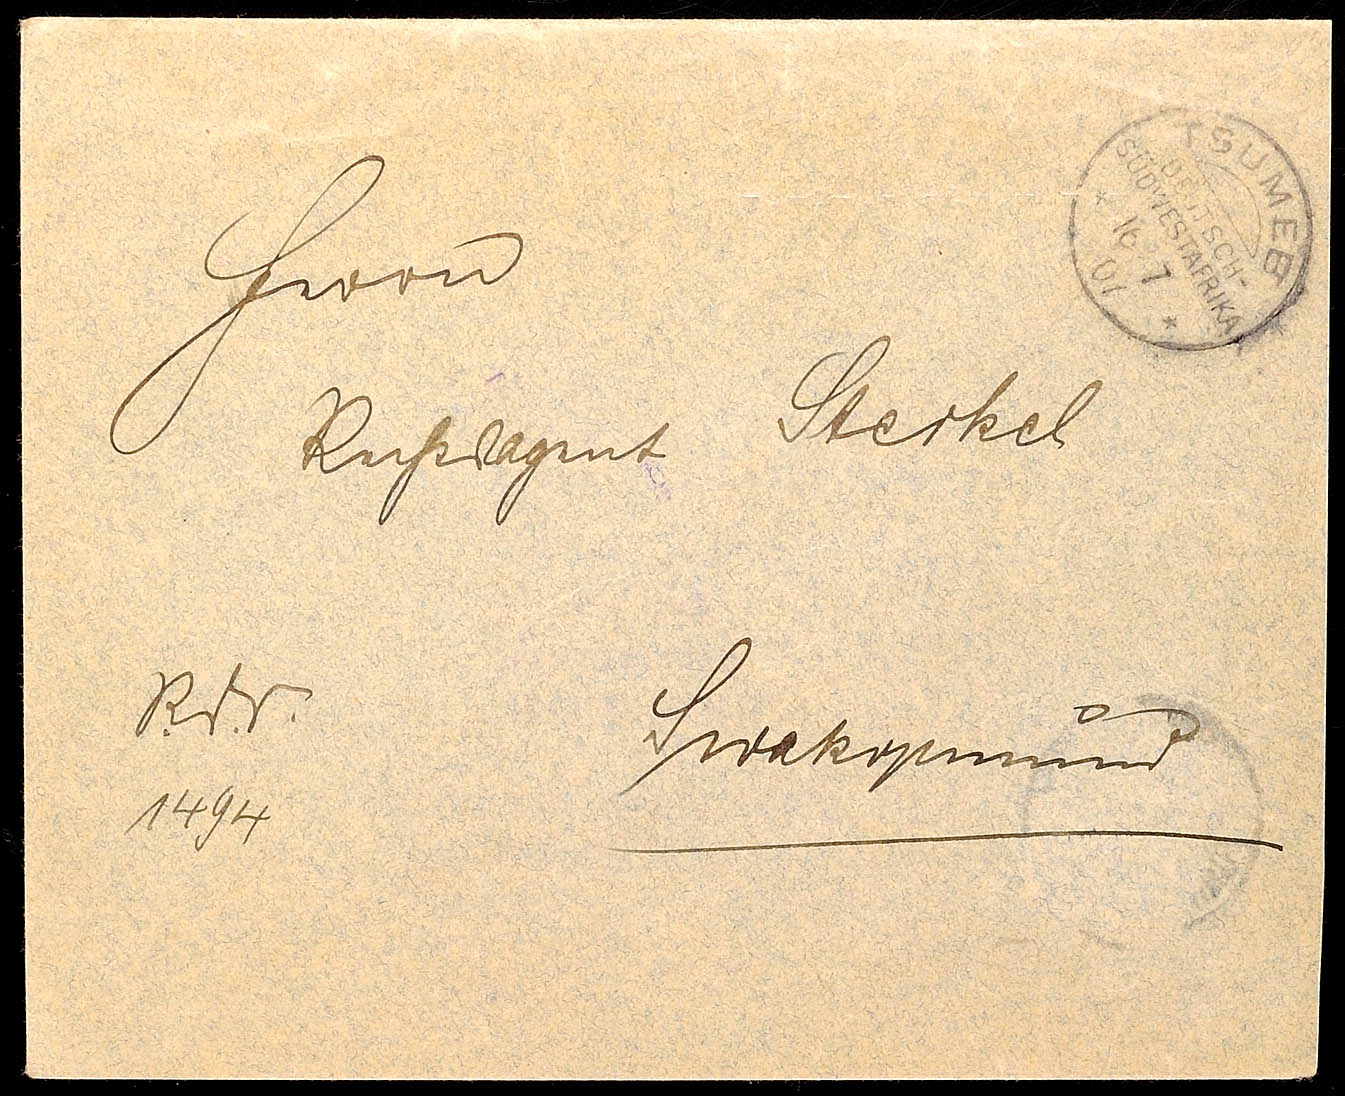 TSUMEB
DEUTSCH-
SÜDWESTAFRIKA
* 16 7 *
07
Herrn
Rechtsagent Sterkel
Swakopmund
1494